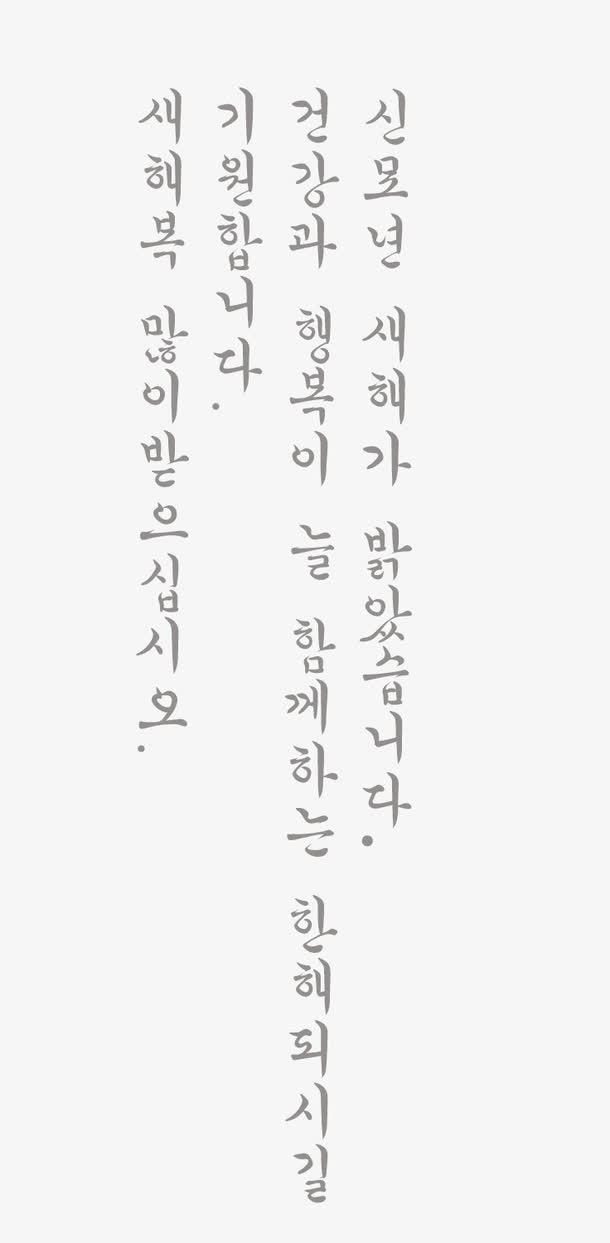 신묘년 새해가 밝았습니다.
건강과 행복이 늘 함께하는 한해되시길
기원합니다.
새해복 많이받으십시오.